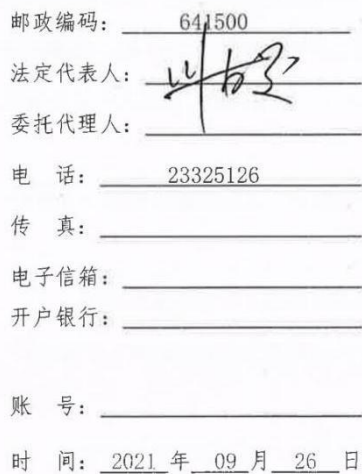 邮政编码: 641500
法定代表人:
委托代理人:
电 话: 23325126
传 真:
电子信箱:
开户银行:
账 号:
时 间: 2021 年 09 月 26 日